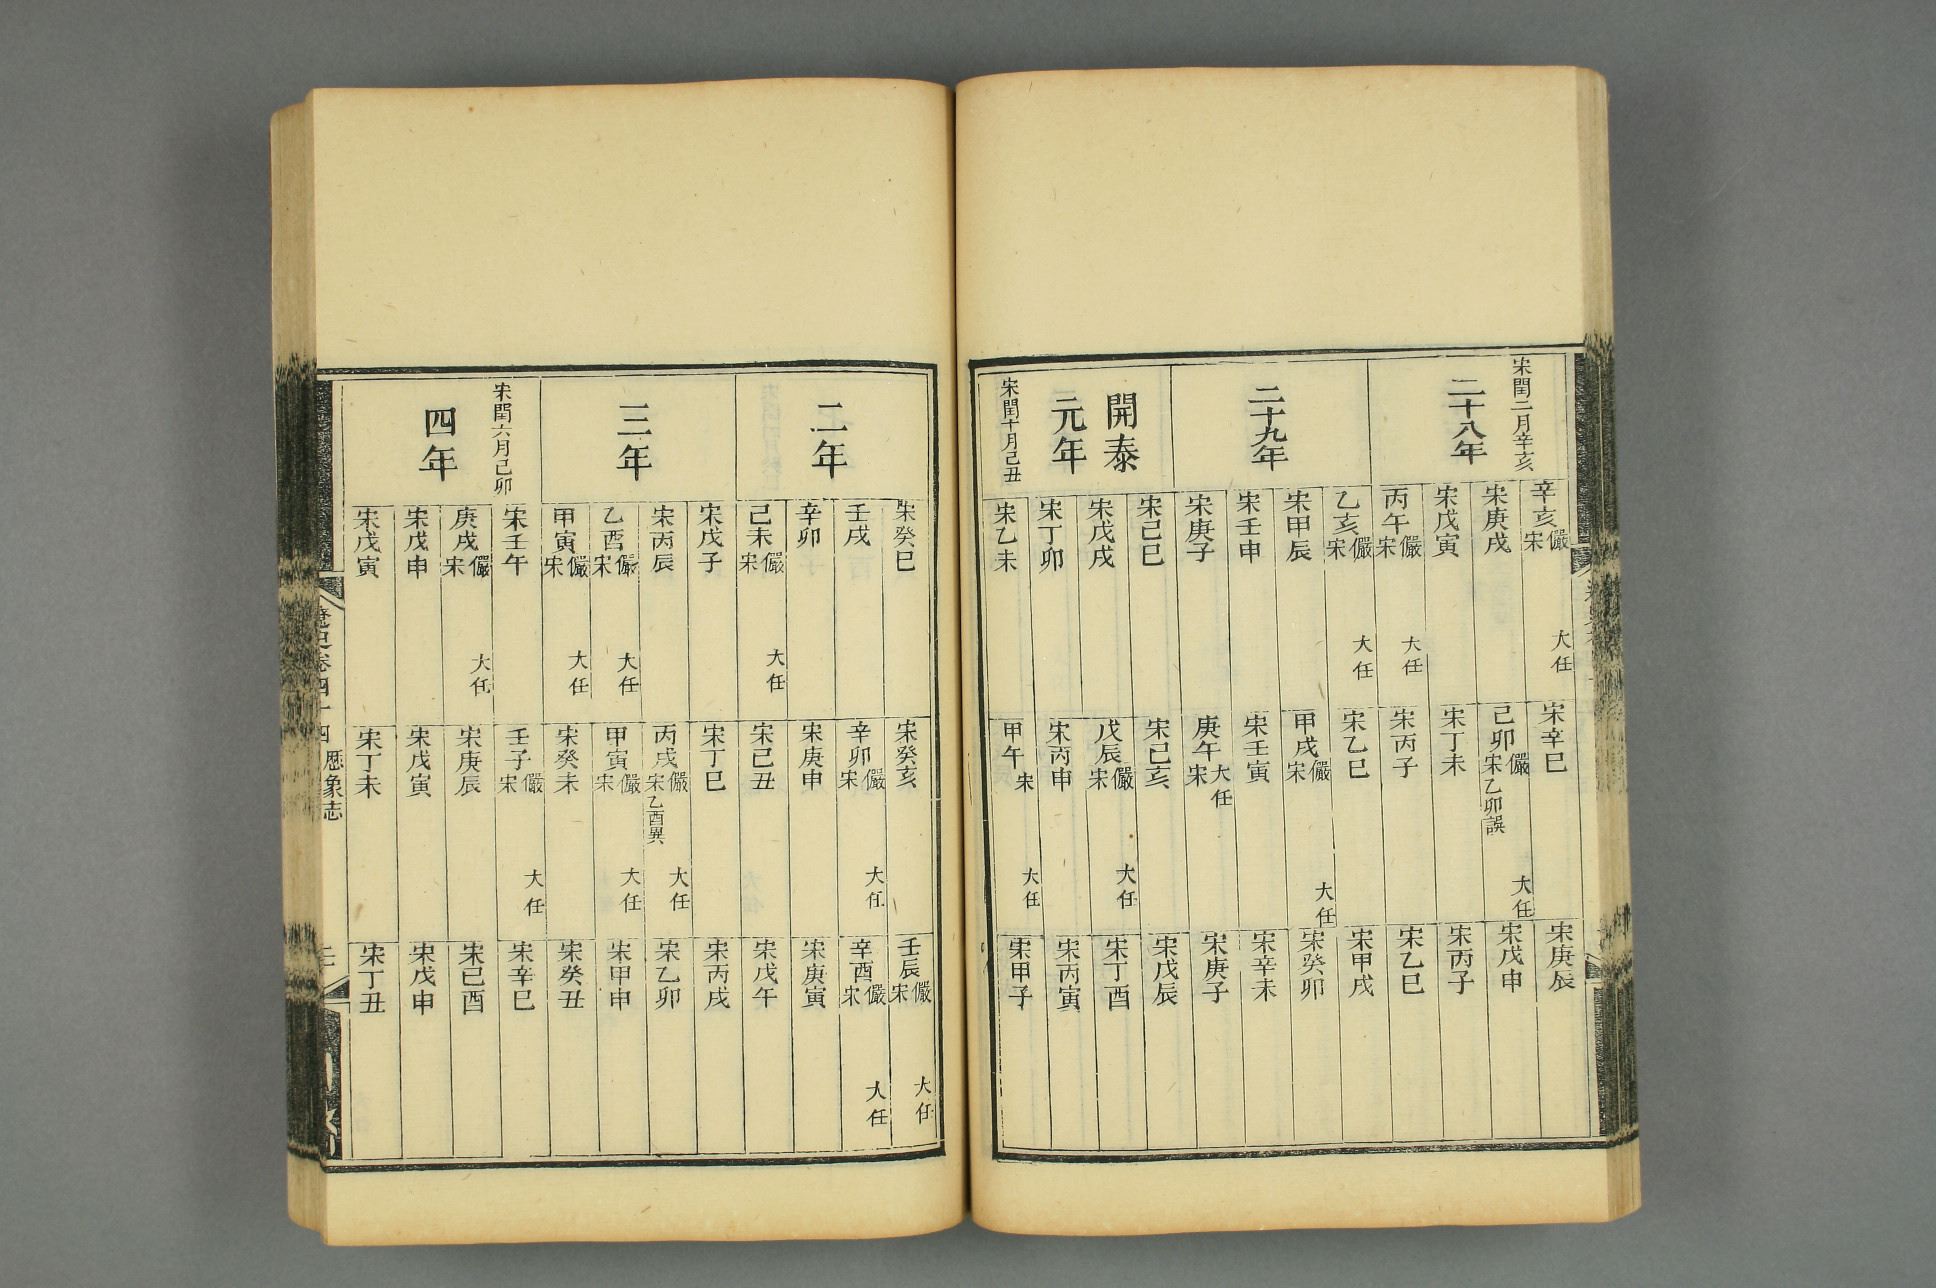 宋閏二月辛亥
二十八年
辛亥儼大任宋
宋辛巳
宋庚辰
宋庚戌
己卯儼大任宋乙卯誤
宋戊申
宋戊寅
宋丁未
宋丙子
丙午儼大任宋
宋丙子
宋乙巳
二十九年
乙亥儼大任宋
宋乙巳
宋甲戌
宋甲辰
甲戌儼大任宋
宋癸卯
宋壬申
宋壬寅
宋辛未
宋庚子
庚午大任宋
宋庚子
開泰
元年
宋閏十月己丑
宋己巳
宋己亥
宋戊辰
宋戊戌
戊辰儼大任宋
宋丁酉
宋丁卯
宋丙申
宋丙寅
宋乙未
甲午大任宋
宋甲子
二年
宋癸巳
宋癸亥
壬辰儼大任宋
壬戌
辛卯儼大任宋
辛酉儼大任宋
辛卯
宋庚申
宋庚寅
己未儼大任宋
宋己丑
宋戊午
三年
宋戊子
宋丁巳
宋丙戌
宋丙辰
丙戌儼大任宋乙酉異
宋乙卯
乙酉儼大任宋
甲寅儼大任宋
宋甲申
甲寅儼大任宋
宋癸未
宋癸丑
宋閏六月己卯
四年
宋壬午
壬子儼大任宋
宋辛巳
庚戌儼大任宋
宋庚辰
宋己酉
宋戊申
宋戊寅
宋戊申
宋戊寅
宋丁未
宋丁丑
遼史卷四十四 歷象志